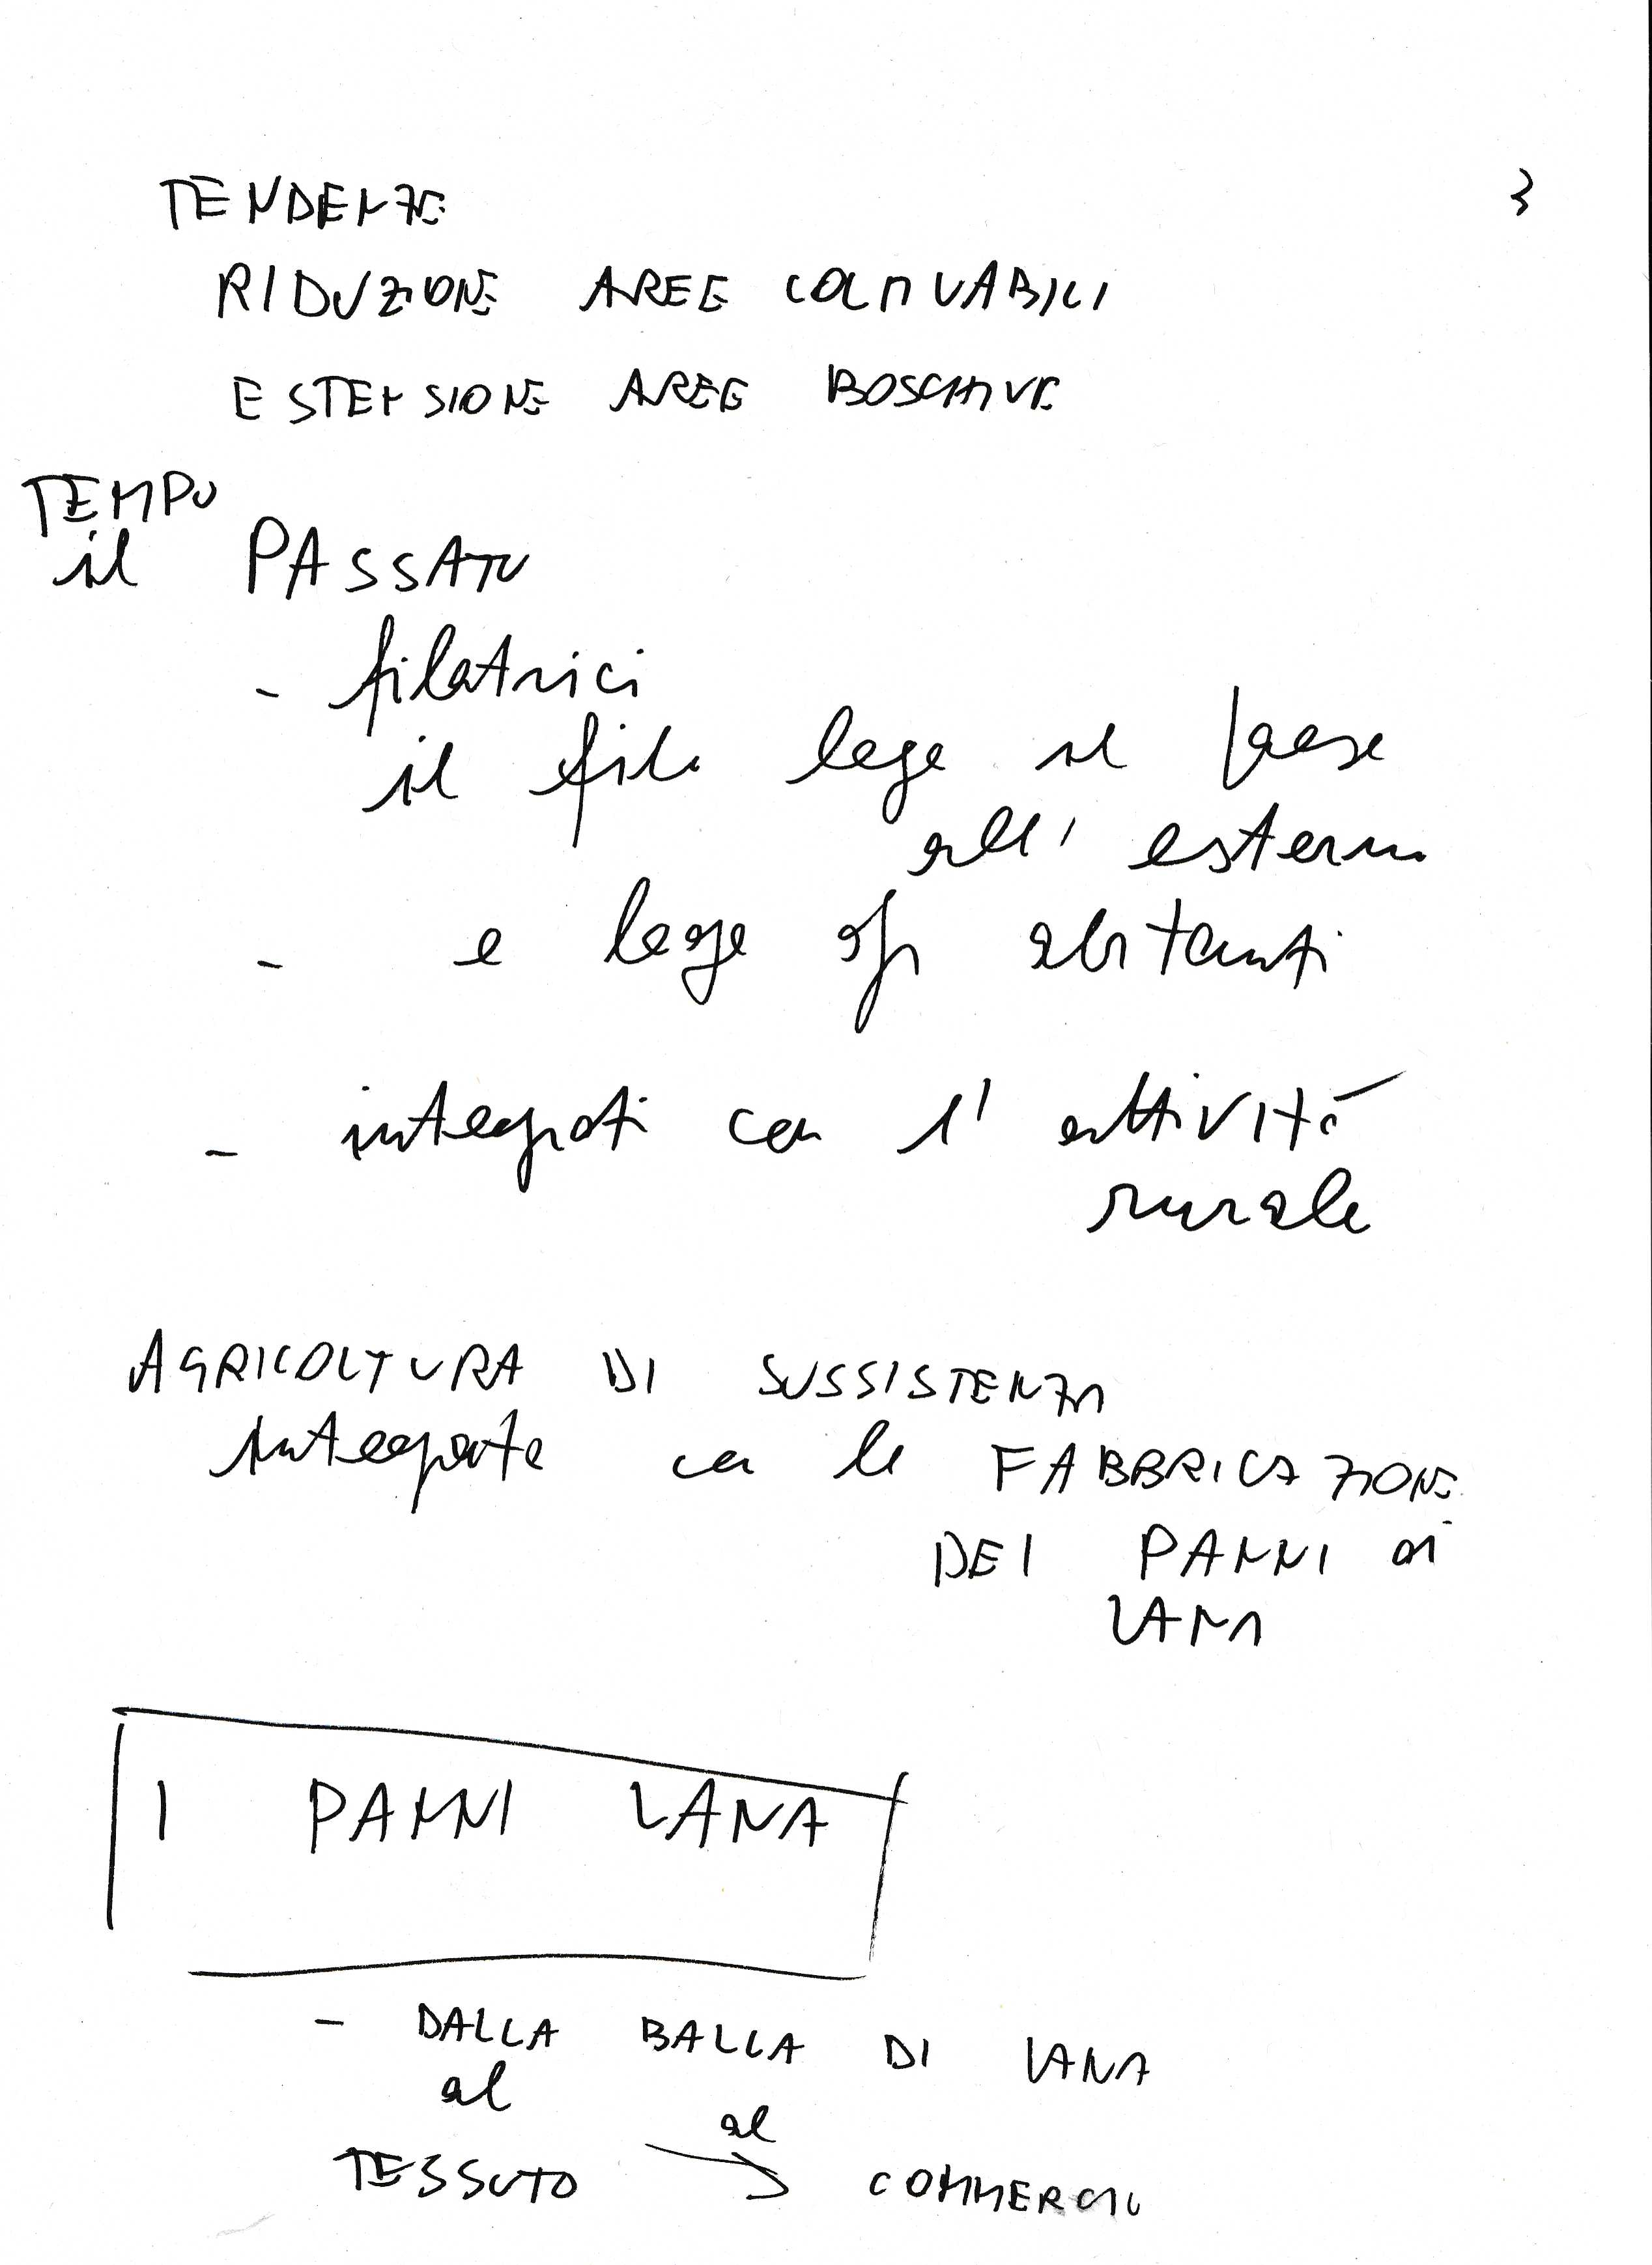 3
TENDENZE
RIDUZIONE AREE COLTIVABILI
ESTENSIONE AREE BOSCHIVE
TEMPO
il PASSATO
- filatrici
il filo lega il paese
all' esterno
- e lega gli abitanti
- integrati con l' attività
rurale
AGRICOLTURA DI SUSSISTENZA
integrata con la FABBRICAZIONE
DEI PANNI di
LANA
I PANNI LANA
- DALLA BALLA DI LANA
al
al
TESSUTO → COMMERCIO